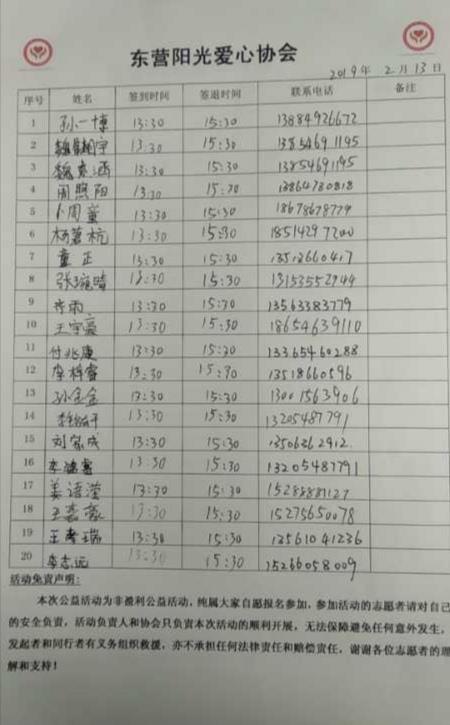 东营阳光爱心协会
2019年 2月13日
序号 姓名 签到时间 签退时间 联系电话 备注
1 孙一博 13:30 15:30 13884926672
2 13:30 15:30 13854691195
3 13:30 15:30 13854691195
4 周照阳 13:30 15:30 13864780818
5 卜周童 13:30 15:30 18678678779
6 杨茗杭 13:30 15:30 18514297200
7 童正 13:30 15:30 13512660417
8 张琬晴 13:30 15:30 13153552944
9 李雨 13:30 15:30 13563383779
10 王宇豪 13:30 15:30 18654639110
11 付兆康 13:30 15:30 13365460288
12 李梓睿 13:30 15:30 13518660596
13 孙金金 13:30 15:30 13001563906
14 13:30 15:30 13205487791
15 刘家成 13:30 15:30 13506362912
16 13:30 15:30 13205487791
17 姜语滢 13:30 15:30 15288881127
18 王嘉豪 13:30 15:30 15275650078
19 13:30 15:30 13561041236
20 李志远 13:30 15:30 15266058009
活动免责声明：
本次公益活动为非盈利公益活动，纯属大家自愿报名参加，参加活动的志愿者请对自己
的安全负责，活动负责人和协会只负责本次活动的顺利开展，无法保障避免任何意外发生，
发起者和同行者有义务组织救援，亦不承担任何法律责任和赔偿责任，谢谢各位志愿者的理
解和支持！